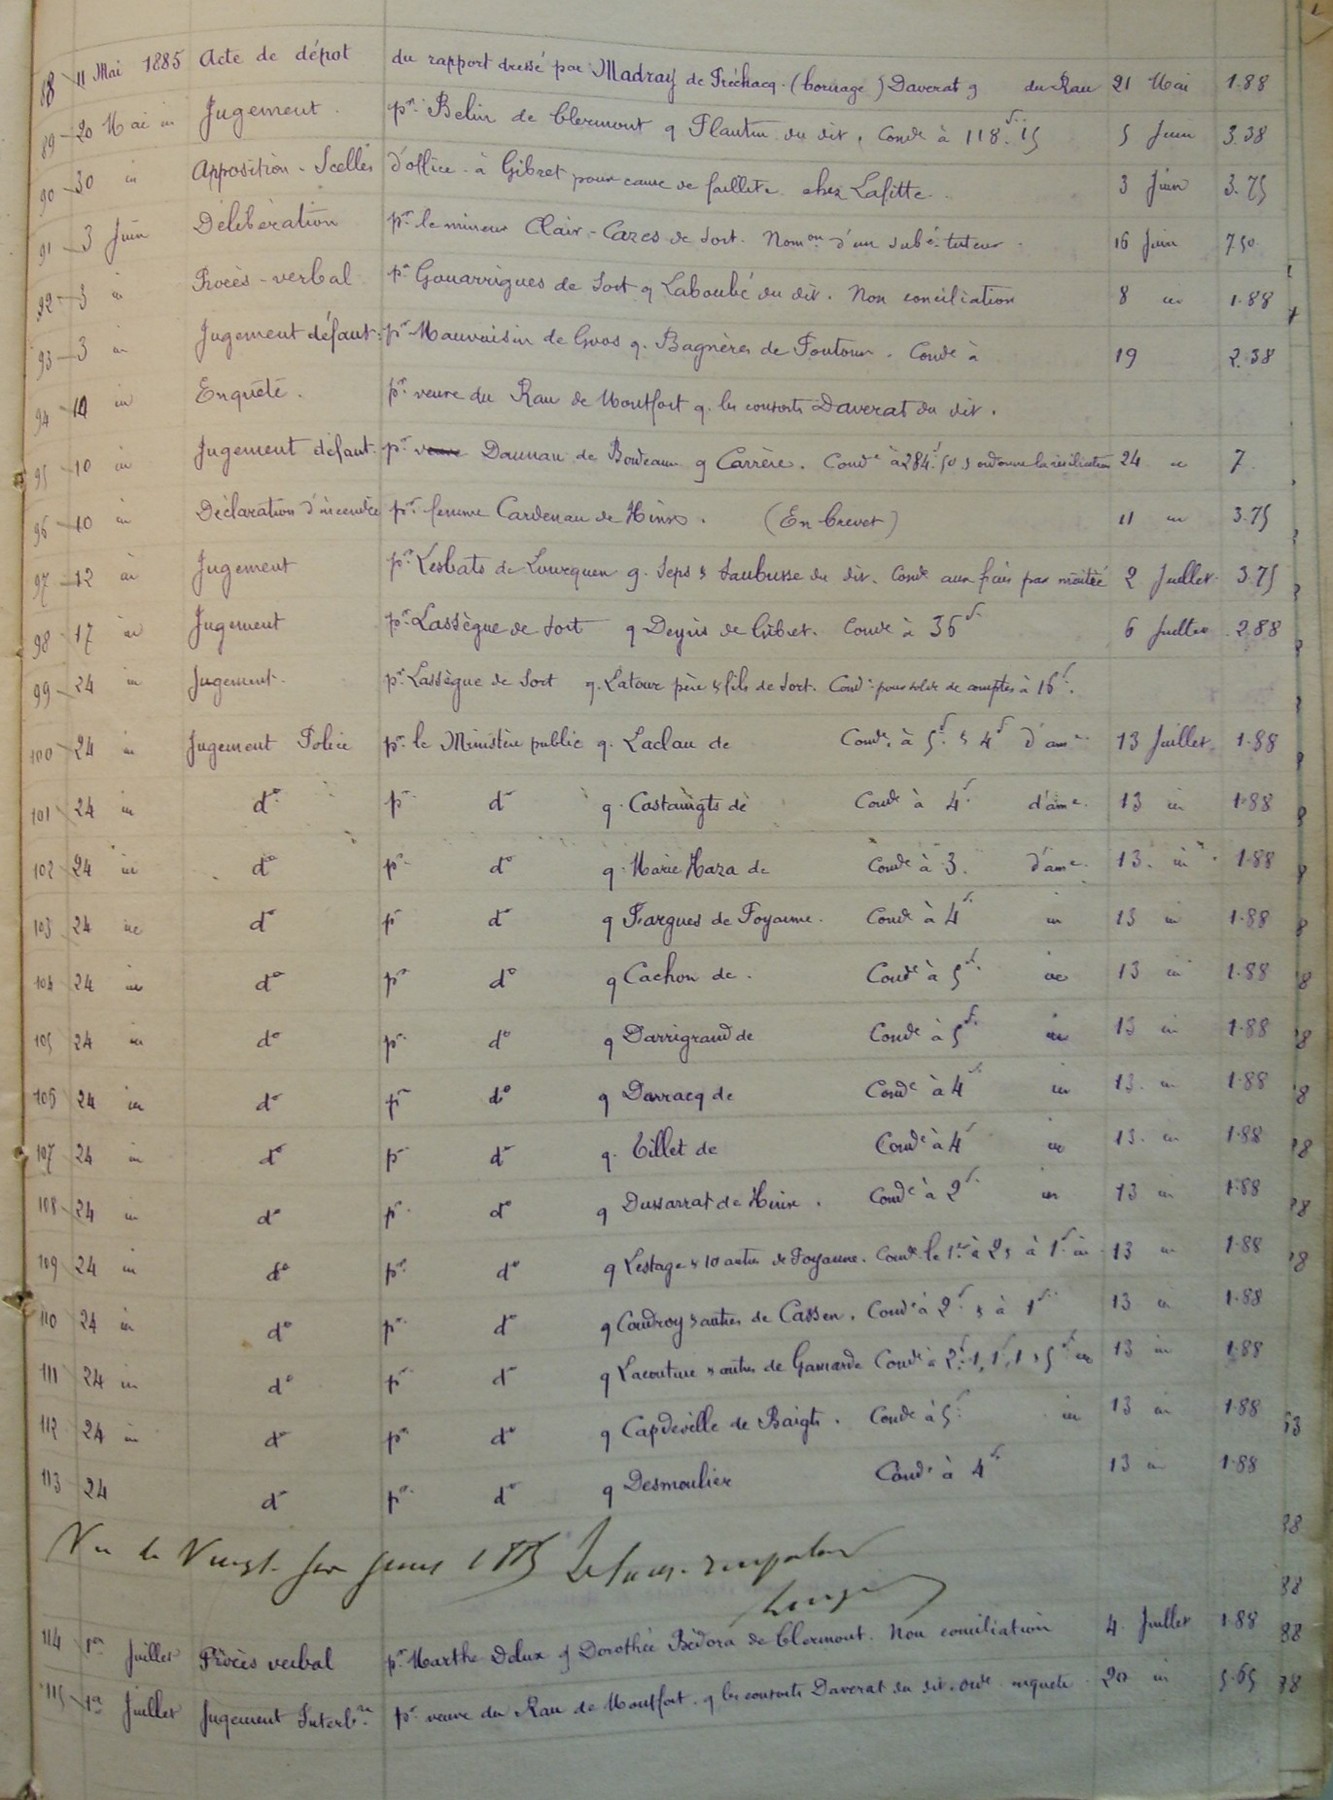 88 11 Mai 1885 Acte de dépot du rapport dressé par Madray de Préchacq. (bornage) Daverat q du Rau 21 Mai 1.88
89 20 Mai in Jugement. pr. Belin de Clermont q Plantin du dit. Condé à 118f.15 5 Juin 3.38
90 30 in Apposition - Scellés d'office à Gibret pour cause de faillite chez Lafitte. 3 Juin 3.75
91 3 Juin Délibération pr. le mineur Clair-Cazes de Sort. Nomon d'un subé-tuteur. 16 Juin 7.50
92 3 in Procès-verbal pr Gouarrigues de Sort q Laboubé du dit. Non conciliation 8 in 1.88
93 3 in Jugement défaut. pr Mauvoisin de Goos q. Bagnères de Poutoun. Condé à 19 2.38
94 10 in Enquête. pr. veuve du Rau de Montfort q. les consorts Daverat du dit.
95 10 in Jugement défaut. pr Daunau de Bordeaux q Carrère. Condé à 284f.50 & ordonne la résiliation 24 in 7
96 10 in Déclaration d'incendie pr femme Cardenau de Hinx. (En brevet) 11 in 3.75
97 12 in Jugement pr. Lesbats de Lourquen q. Seps & Saubusse du dit. Condé aux frais par moitié 2 Juillet 3.75
98 17 in Jugement pr. Lassègue de Sort q Deyris de Gibret. Condé à 36f. 6 Juillet 2.88
99 24 in Jugement. pr. Lassègue de Sort q. Latour père & fils de Sort. Condé pour solde de comptes à 16f.
100 24 in Jugement Police pr. le Ministère public q. Laclau de Condé. à 5f. & 4f d'ame. 13 Juillet. 1.88
101 24 in do pr do q. Castaingts de Condé à 4f. d'ame. 13 in 1.88
102 24 in do pr do q. Marie Haza de Condé à 3. d'ame. 13. in 1.88
103 24 in do pr do q Fargues de Poyanne. Condé à 4f. in 13 in 1.88
104 24 in do pr do q Cachon de. Condé à 5f. in 13 in 1.88
105 24 in do pr do q Darrigrand de Condé à 5f. in 13 in 1.88
106 24 in do pr do q Darracq de Condé à 4f. in 13. in 1.88
107 24 in do pr do q. Tillet de Condé à 4f in 13. in 1.88
108 24 in do pr. do q Dussarrat de Hinx. Condé à 2f. in 13 in 1.88
109 24 in do pr. do q Lestage & 10 autres de Poyanne. Condé le 1er à 2 & à 1f. in 13 in 1.88
110 24 in do pr. do q Coudroy & autres de Cassen. Condé à 2f. & à 1f. 13 in 1.88
111 24 in do pr do q Lacouture & autres de Gamarde Condé à 2f.1, 1f, 1 & 5f in 13 in 1.88
112 24 in do pr do q Capdeville de Baigts. Condé à 5f. in 13 in 1.88
113 24 do pr. do q Desmoulier Condé à 4f. 13 in 1.88
Vu le Vingt Juin 1885
114 1er Juillet Procès verbal pr. Marthe Delux q Dorothée Bédora de Clermont. Non conciliation 4 Juillet 1.88
115 1er Juillet Jugement Interlre pr. veuve du Rau de Montfort. q les consorts Daverat du dit. Orde enquete. 20 in 5.65